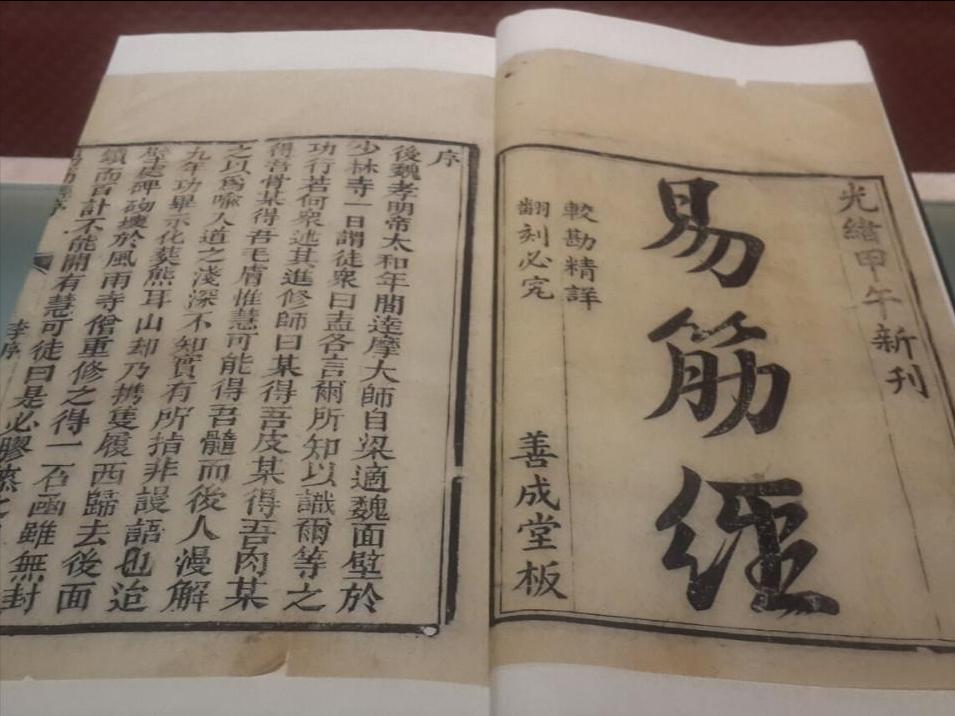 光緒甲午新刊
易筋經
較勘精詳
翻刻必究
善成堂板
序
後魏孝明帝太和年間達摩大師自梁適魏面壁於
少林寺一日謂徒衆曰盍各言爾所知以識爾等之
功行若何衆述其進修師曰某得吾皮某得吾肉某
得吾骨某得吾毛膚惟慧可能得吾髓而後人漫解
之以爲喻入道之淺深不知實有所指非謾語也迨
九年功畢示化葬熊耳山却乃携隻履西歸去後面
壁處碑砌壞於風雨寺僧重修之得一石函雖無封
鎖而百計不能開有慧可徒曰是必膠漆之
李序